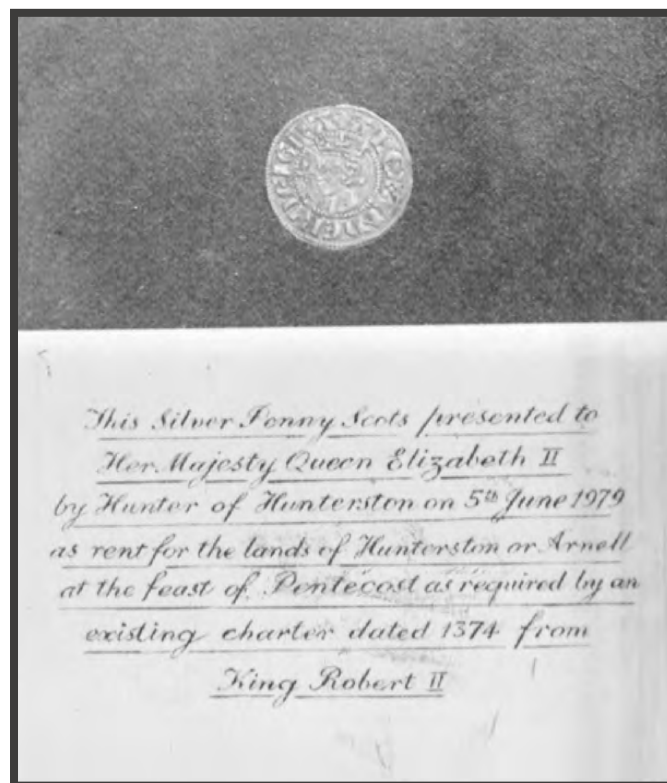 This Silver Penny Scots presented to
Her Majesty Queen Elizabeth II
by Hunter of Hunterston on 5th June 1979
as rent for the lands of Hunterston or Arnell
at the feast of Pentecost as required by an
existing charter dated 1374 from
King Robert II